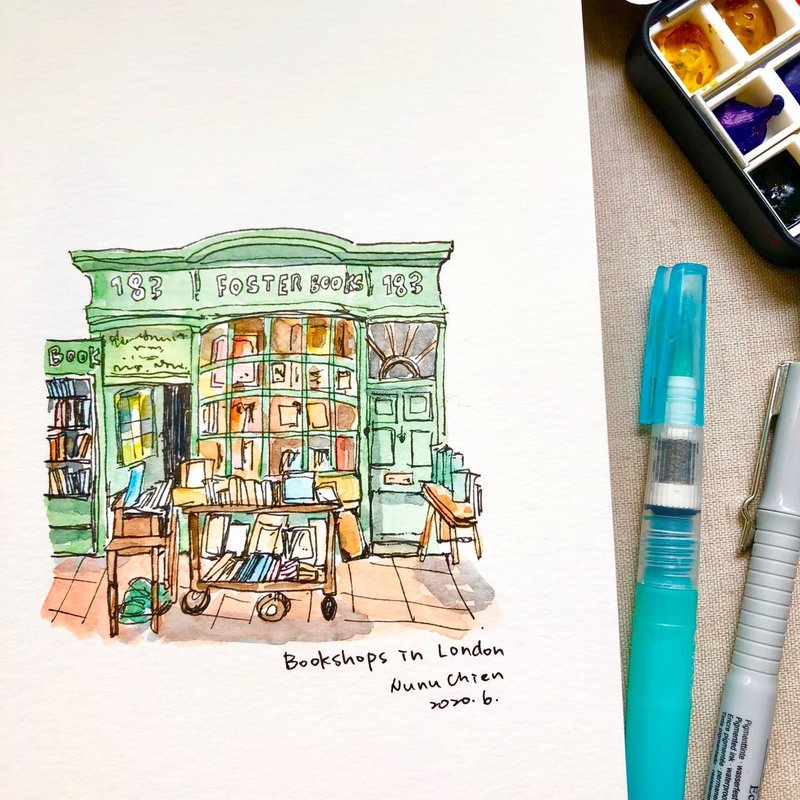 183 FOSTER BOOKS 183
BOOK
Bookshops in London
Nunu Chien
2020.6.
Pigmenttinte · wasserfest
Pigmented ink · waterproof
Encre pigmentée · permanente